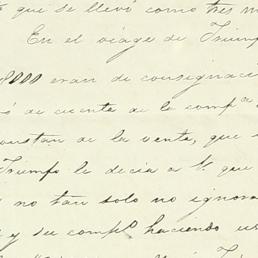 que se llevó como tres m
En el viage de Triump
8000 eran de consignac
de cuenta de la comp.ª
constan de la venta, que s
Triumfo le decia a V. que
no tan solo no ignora
y su comp.º haciendo us